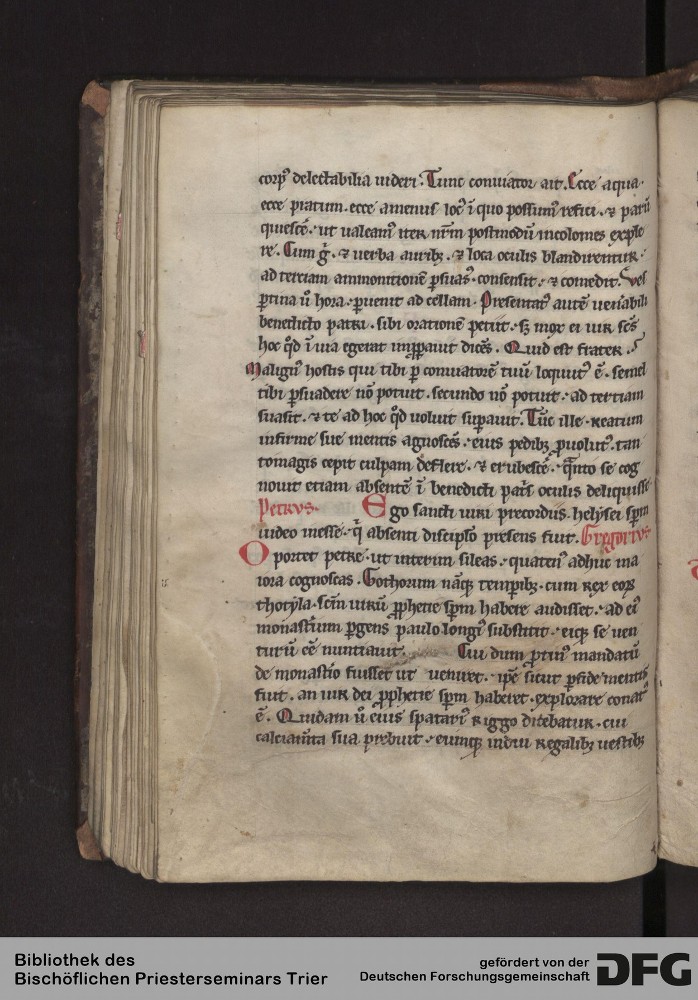 corp᷒ delectabilia uideri. Tunc conuiator ait. Ecce aqua.
ecce pratum. ecce amenus loc᷒ ī quo possum᷒ refici. ⁊ parū
quiescē. ut ualeam᷒ iter nr̄m postmodū incolomes explo
re. Cum g̊. ⁊ uerba aurib₃. ⁊ loca oculis blandirentur.
ad terciam ammonitionē ꝑsuas᷒. consensit. ⁊ comedit. Ves
ꝑtina ū hora. ꝑuenit ad cellam. Presentat᷒ autē uen̄abili
benedicto patri. sibi orationē petiit. s₃ mox ei uir sc̄s
hoc qd̄ ī uia egerat īproꝑauit dicēs. Quid est frater.
Malign᷒ hostis qui tibi ꝑ conuiatorē tuū loquut᷒ ē. semel
tibi ꝑsuadere nō potuit. secundo nō potuit. ad terciam
suasit. ⁊ te ad hoc qd̄ uoluit suꝑauit. Tūc ille. reatum
infirme sue mentis agnoscēs. eius pedib₃ ꝓuolut᷒. tan
tomagis cepit culpam deflere. ⁊ erubescē. qn̄to se cog
nouit etiam absentē ī benedicti pat̄s oculis deliquisse
Petrvs. Ego sancti uiri precordiis. helysei spm̄
uideo inesse. q̄ absenti discipl̄o presens fuit. Gregorivs
Oportet petre. ut interim sileas. quaten᷒ adhuc ma
iora cognoscas. Gothorum nāq₃ temꝑib₃. cum rex eoꝝ
thotyla. scm̄ uirū ꝓphetie spm̄ habere audisset. ad ei᷒
monast̄ium ꝑgens paulo longi᷒ substitit. eiq₃ se uen
turū eē nuntiauit. Cui dum ꝓtin᷒ mandatū
de monast̄io fuisset ut ueniret. ip̄e sicut ꝑfide mentis
fuit. an uir dei ꝓphetie spm̄ haberet. explorare conat᷒
ē. Quidam ū eius spatari᷒ riggo dicebatur. cui
calciam̄ta sua prebuit. eumq₃ indui regalib₃ uestib₃
Bibliothek des
Bischöflichen Priesterseminars Trier
gefördert von der
Deutschen Forschungsgemeinschaft
DFG